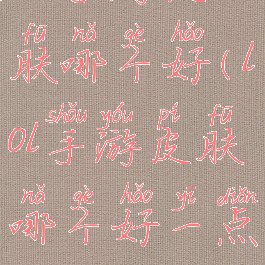 fū nǎ gè hǎo
肤哪个好(l
shǒu yóu pí fū
ol手游皮肤
nǎ gè hǎo yī diǎn
哪个好一点